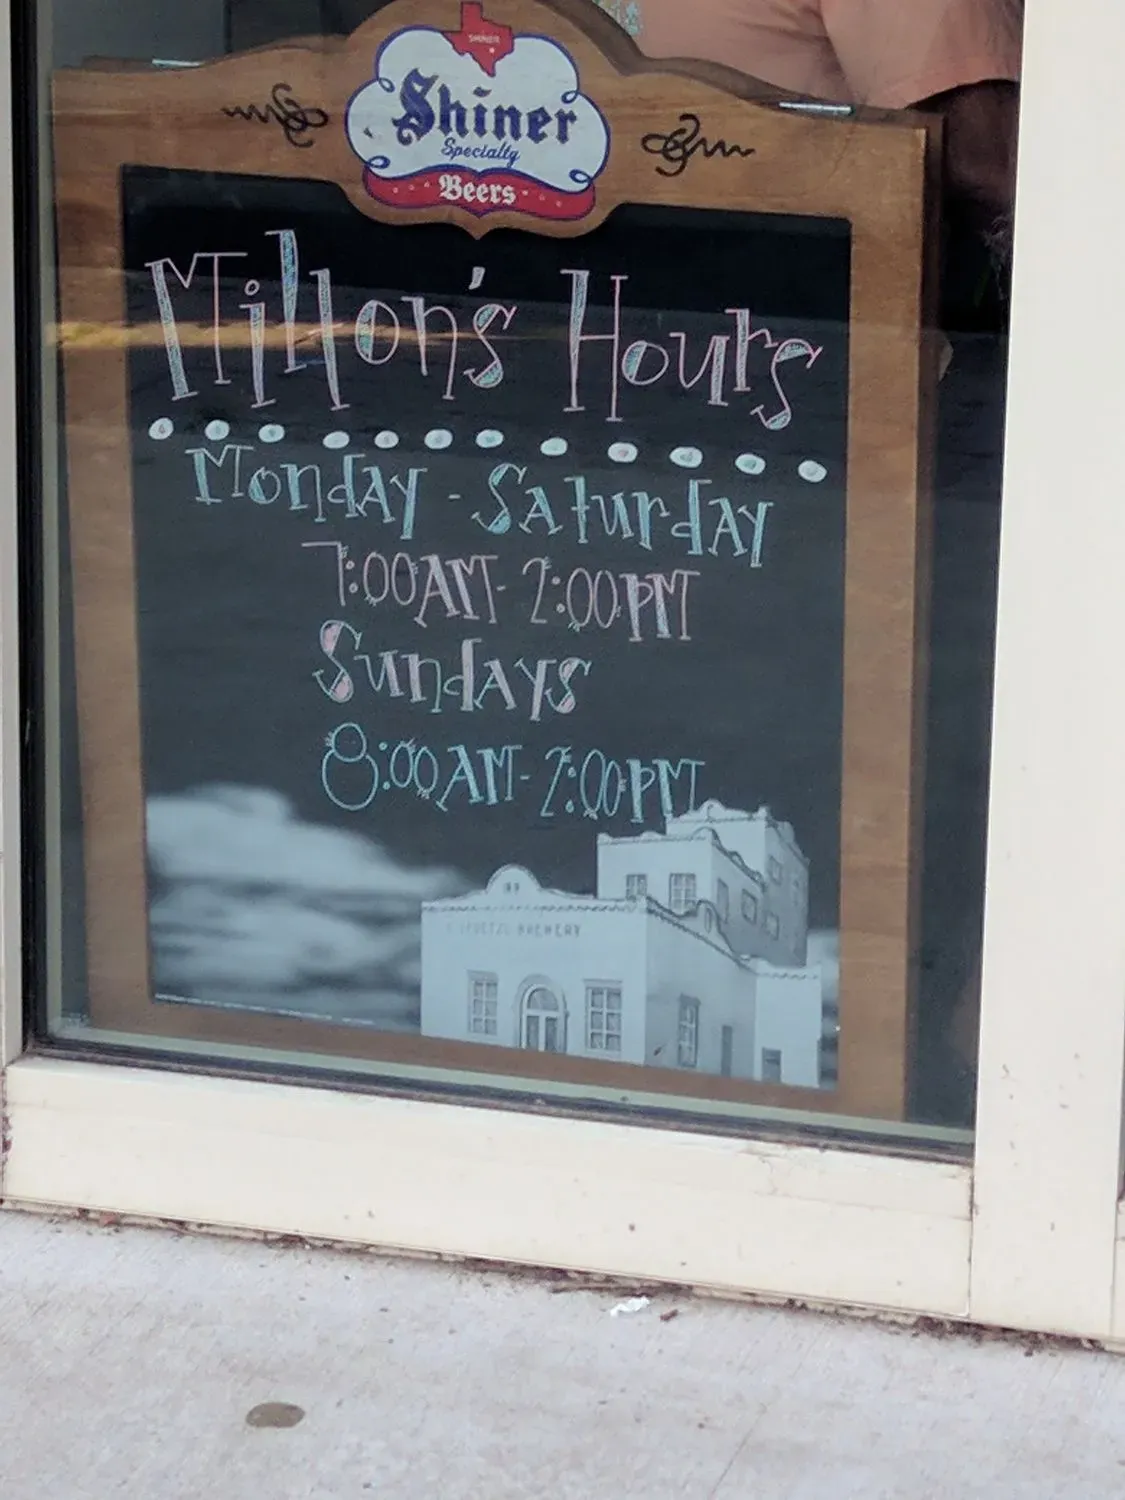 SHINER
Shiner
Specialty
Beers
Milton's Hours
Monday - Saturday
7:00AM - 2:00PM
Sundays
8:00AM - 2:00PM
BREWERY